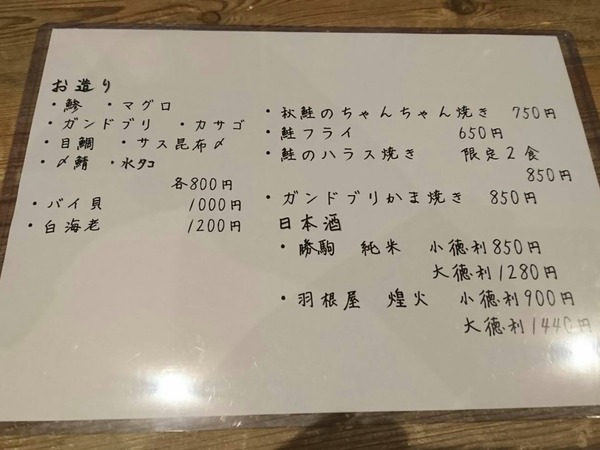 お造り
・鯵 ・マグロ
・ガンドブリ ・カサゴ
・目鯛 ・サス昆布〆
・〆鯖 ・水タコ
各800円
・バイ貝 1000円
・白海老 1200円
・秋鮭のちゃんちゃん焼き 750円
・鮭フライ 650円
・鮭のハラス焼き 限定2食
850円
・ガンドブリかま焼き 850円
日本酒
・勝駒 純米 小徳利850円
大徳利1280円
・羽根屋 煌火 小徳利900円
大徳利1440円